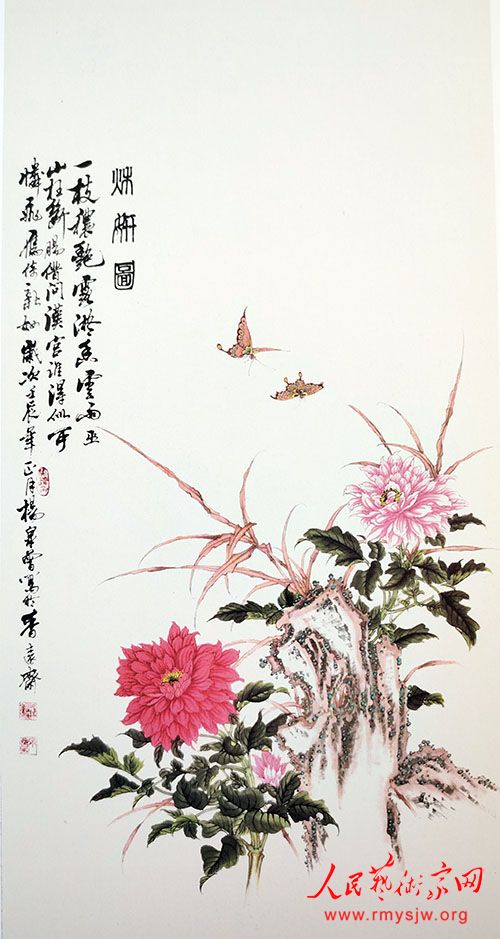 妍圖
一枝穠艷露凝香雲雨巫
山枉斷腸借問漢宮誰得似可
憐飛燕倚新妝歲次壬辰年正月楊寫於香遠齋
人民藝術家网
www.rmysjw.org